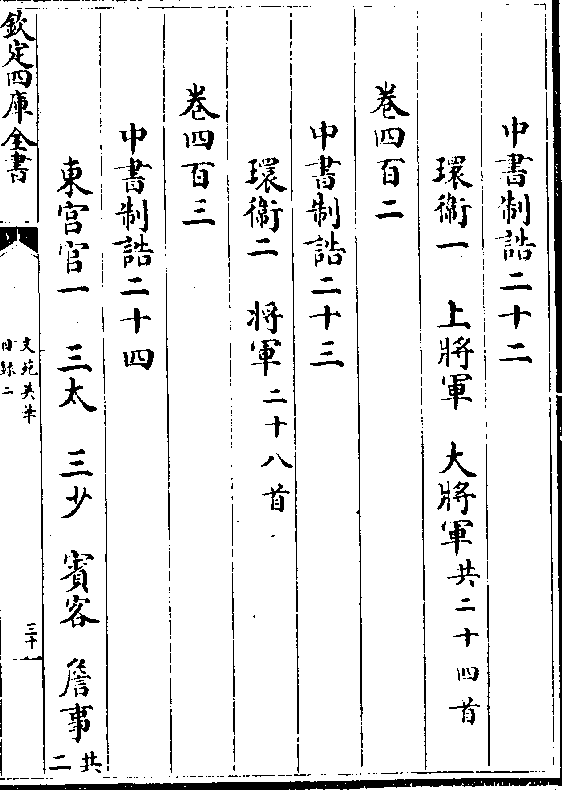 中書制誥二十二
環衞一 上將軍 大將軍共二十四首
卷四百二
中書制誥二十三
環衞二 將軍二十八首
卷四百三
中書制誥二十四
東宮官一 三太 三少 賓客 詹事共二
欽定四庫全書
文苑英華
目録二
三十